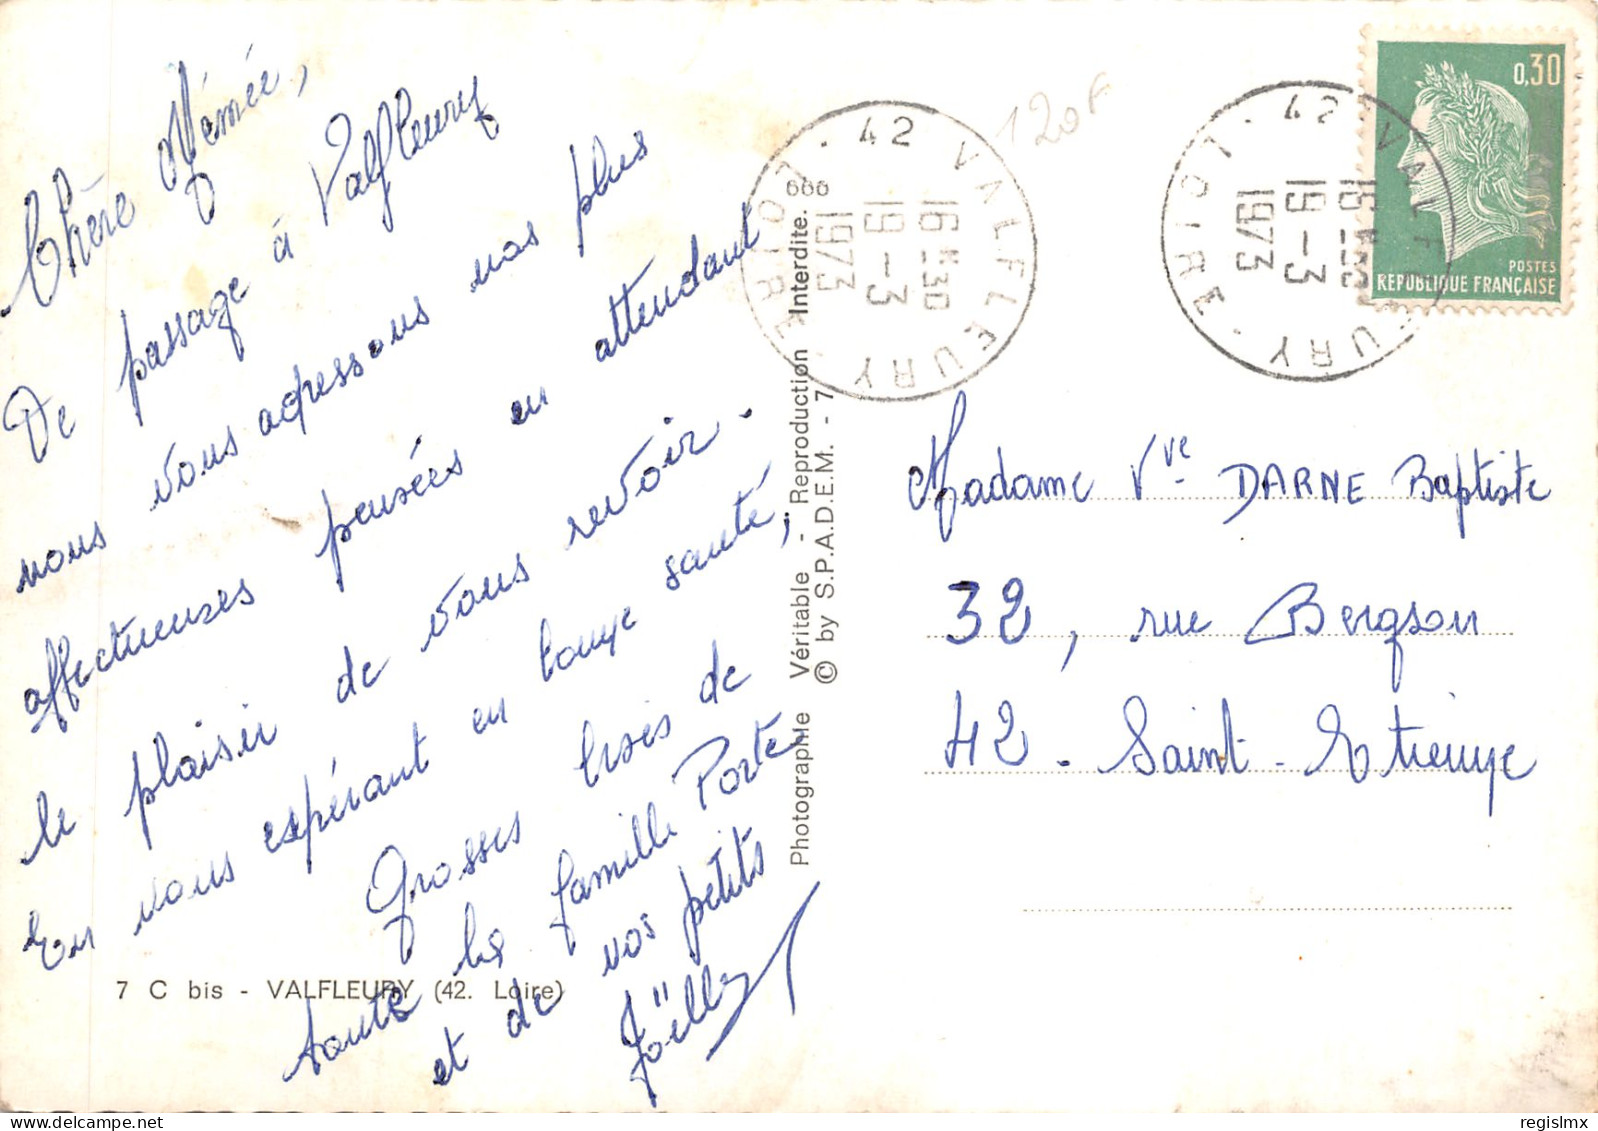 Chère Mémée,
De passage à Valfleury
nous vous adressons nos plus
affectueuses pensées en attendant
le plaisir de vous revoir.
En vous espérant en bonne santé,
Grosses bises de
toute la famille Porte
et de vos petits
Joëlle
7 C bis - VALFLEURY (42. Loire)
Photographie Véritable - Reproduction Interdite. 666
© by S.P.A.D.E.M. - 7
120F
42 VALFLEURY · LOIRE
16H30
19-3
1973
42 VALFLEURY · LOIRE
16H30
19-3
1973
0,30
POSTES
REPUBLIQUE FRANÇAISE
Madame Vve DARNE Baptiste
32, rue Bergson
42 - Saint-Etienne
regislmx